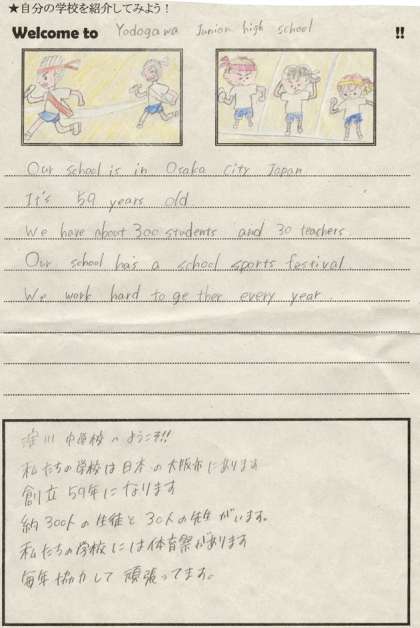 ★自分の学校を紹介してみよう!
Welcome to Yodogawa Junior high school !!
Our school is in Osaka city Japan
It's 59 years old
We have about 300 students and 30 teachers
Our school has a school sports festival
We work hard to ge ther every year.
淀川中学校へようこそ!!
私たちの学校は日本の大阪市にあります
創立59年になります
約300人の生徒と30人の先生がいます。
私たちの学校には体育祭があります
毎年協力して頑張ってます。